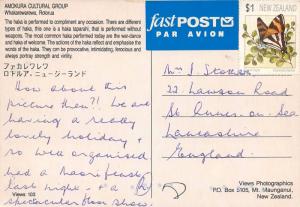 AMOKURA CULTURAL GROUP
Whakarewarewa, Rotorua
The haka is performed to compliment any occasion. There are different
types of haka, this one is a haka taparahi, that is performed without
weapons. The most common haka performed today are the war-dance
and haka of welcome. The actions of the haka reflect and emphasise the
words of the haka. They can be provocative, intimidating, ferocious and
always portray strength and virility.
ファカレワレワ
ロトルア、ニュージーランド
How about this
picture then?! We are
having a really
lovely holiday &
so well organised
had a Maori feast
last night - & a
spectacular floor show.
Views 103
fast POST
PAR AVION
$1 NEW ZEALAND
Mrs
22 Lawson Road
St Annes-on-Sea
Lancashire
England.
Views Photographics
P.O. Box 5105, Mt. Maunganui,
New Zealand.